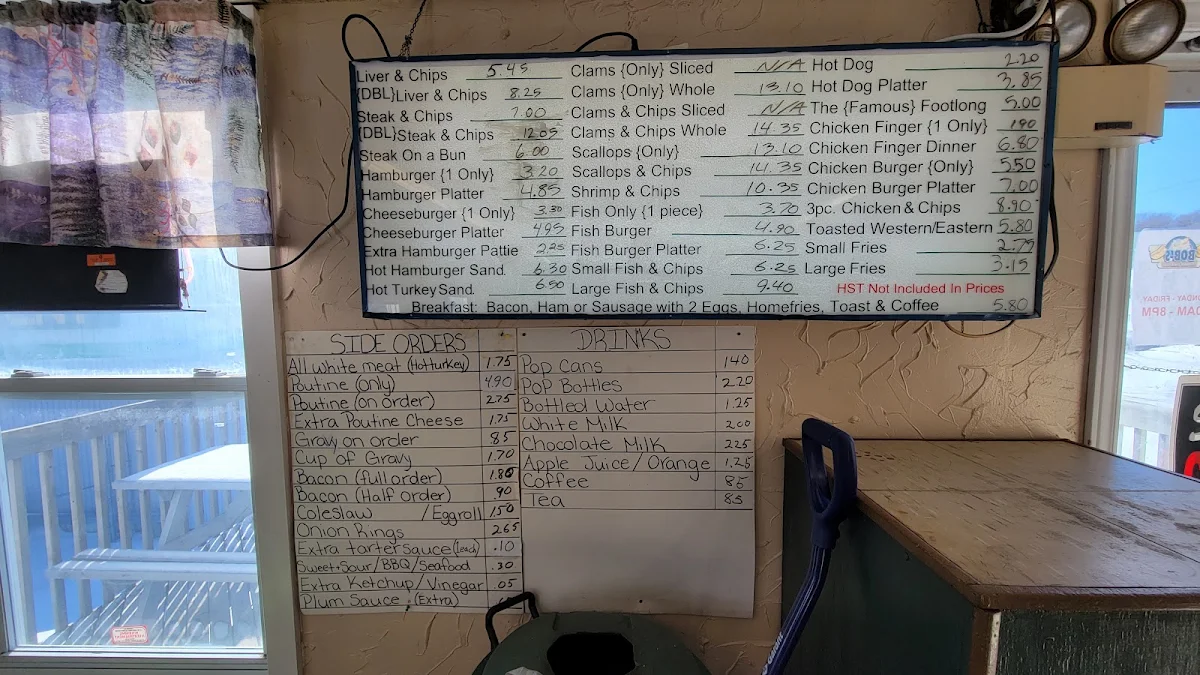 Liver & Chips 5.45
{DBL}Liver & Chips 8.25
Steak & Chips 7.00
{DBL}Steak & Chips 12.05
Steak On a Bun 6.00
Hamburger {1 Only} 3.20
Hamburger Platter 4.85
Cheeseburger {1 Only} 3.30
Cheeseburger Platter 4.95
Extra Hamburger Pattie 2.25
Hot Hamburger Sand. 6.30
Hot Turkey Sand. 6.50
Clams {Only} Sliced N/A
Clams {Only} Whole 13.10
Clams & Chips Sliced N/A
Clams & Chips Whole 14.35
Scallops {Only} 13.10
Scallops & Chips 14.35
Shrimp & Chips 10.35
Fish Only {1 piece} 3.70
Fish Burger 4.90
Fish Burger Platter 6.25
Small Fish & Chips 6.25
Large Fish & Chips 9.40
Hot Dog 2.20
Hot Dog Platter 3.85
The {Famous} Footlong 5.00
Chicken Finger {1 Only} 1.90
Chicken Finger Dinner 6.80
Chicken Burger {Only} 5.50
Chicken Burger Platter 7.00
3pc. Chicken & Chips 8.90
Toasted Western/Eastern 5.80
Small Fries 2.75
Large Fries 3.15
HST Not Included In Prices
Breakfast: Bacon, Ham or Sausage with 2 Eggs, Homefries, Toast & Coffee 5.80
SIDE ORDERS
All white meat (Hot turkey) 1.75
Poutine (only) 4.90
Poutine (on order) 2.75
Extra Poutine Cheese 1.75
Gravy on order 85
Cup of Gravy 1.70
Bacon (full order) 1.80
Bacon (Half order) .90
Coleslaw /Eggroll 1.50
Onion Rings 265
Extra tarter sauce (each) .10
Sweet+Sour/BBQ/Seafood .30
Extra Ketchup/Vinegar .05
Plum Sauce (Extra)
DRINKS
Pop Cans 140
Pop Bottles 220
Bottled Water 1.25
White Milk 200
Chocolate Milk 225
Apple Juice/Orange 1.25
Coffee 85
Tea 85
BOB'S